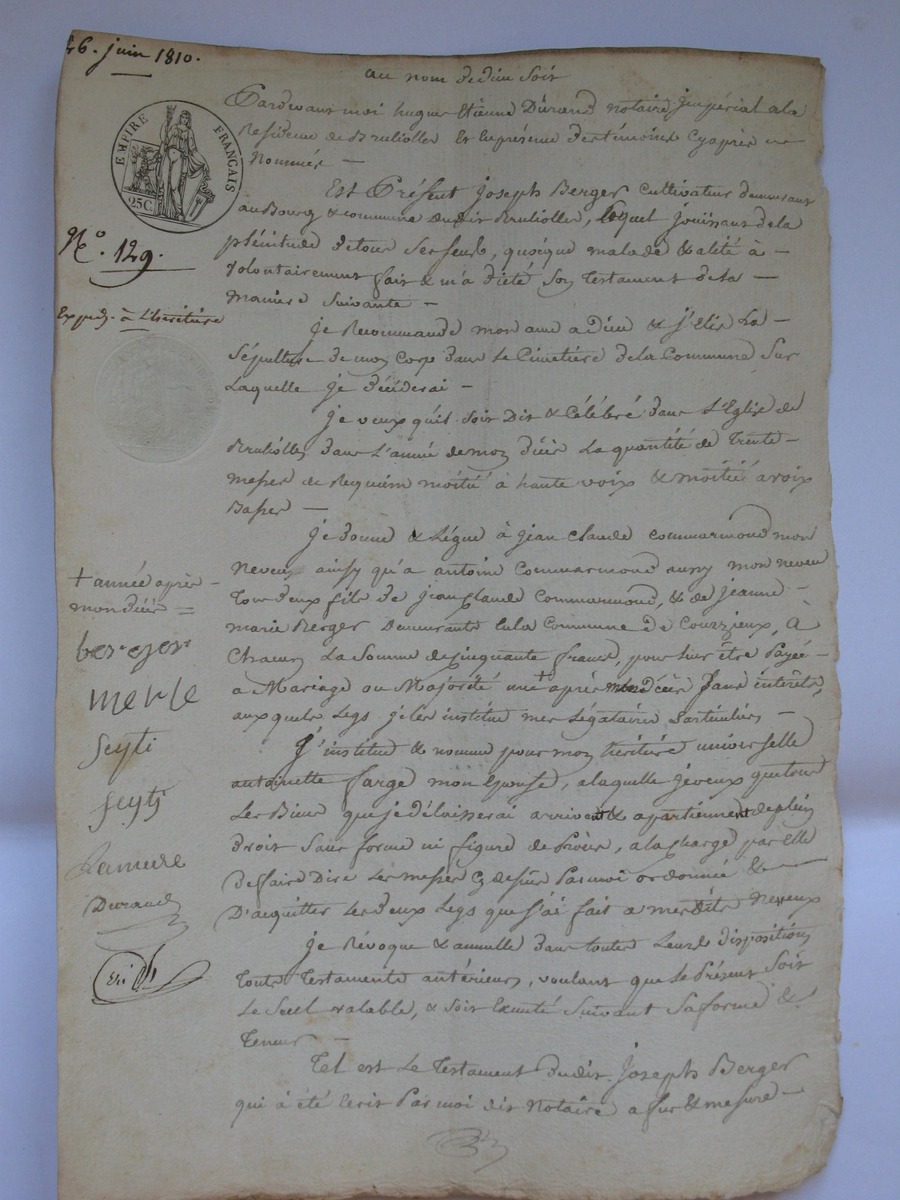 6. juin 1810.
au nom de dieu soit
EMPIRE FRANÇAIS
25 C.
Pardevant moi hugue Etienne Durand notaire Impérial a la
Residence de Brullolles Et En présence des témoins Cy après
Nommés —
N.º 129.
Est Présent Joseph Berger Cultivateur demeurant
au Bourg & commune dudit Brullolles, lequel jouissant de la
plénitude de tous ses sens, quoique malade & alité à —
volontairement fait & m'a dicté son testament de la —
Maniere Suivante —
Exped. à L'heritiere
Je Recommande mon ame a dieu & j'Elis La —
Sépulture de mon Corp dans Le Cimetière de la Commune Sur
Laquelle je décéderai —
Je veux qu'il soit Dit & Célébré dans L'Eglise de
Brullolles dans L'année de mon décès La quantité de Trente —
messes de Requiem moitié à haute voix & moitié a voix
Basses —
Je donne & Légue à jean Claude commarmond mon
Neveu, ainsy qu'a antoine Commarmond aussy mon neveu
Tous deux fils de jean Claude Commarmond, & de jeanne —
marie Berger Demeurants En la Commune de Courzieux, A
Chacun La Somme de cinquante francs, pour leur être Payée —
a Mariage ou Majorité une + après mon décès Sans interêts,
auxquels Legs je les institue mes Légataires particuliers —
+ année après
mon décès =
berger
merle
Seyti
feyti
Lamure
Durand
J'institue & nomme pour mon héritiere universelle
antoinette farge mon Epouse, a laquelle je veux que tous
Les Biens que je délaisserai arrivent & apartiennent de plein
droit Sans forme ni figure de Procès, a la charge par Elle
de faire Dire Les messes Cy dessus Par moi ordonnée &
D'acquitter Les deux Legs que j'ai fait a mesdits Neveux
Je Révoque & annulle dans toutes Leurs dispositions
Touts Testaments antérieurs, voulant que le Présent Soit
Le Seul valable, & Soit Exécuté Suivant Sa forme &
Teneur —
Tel est Le Testament dudit Joseph Berger
qui à été Ecrit Par moi dit Notaire a fur & mesure —